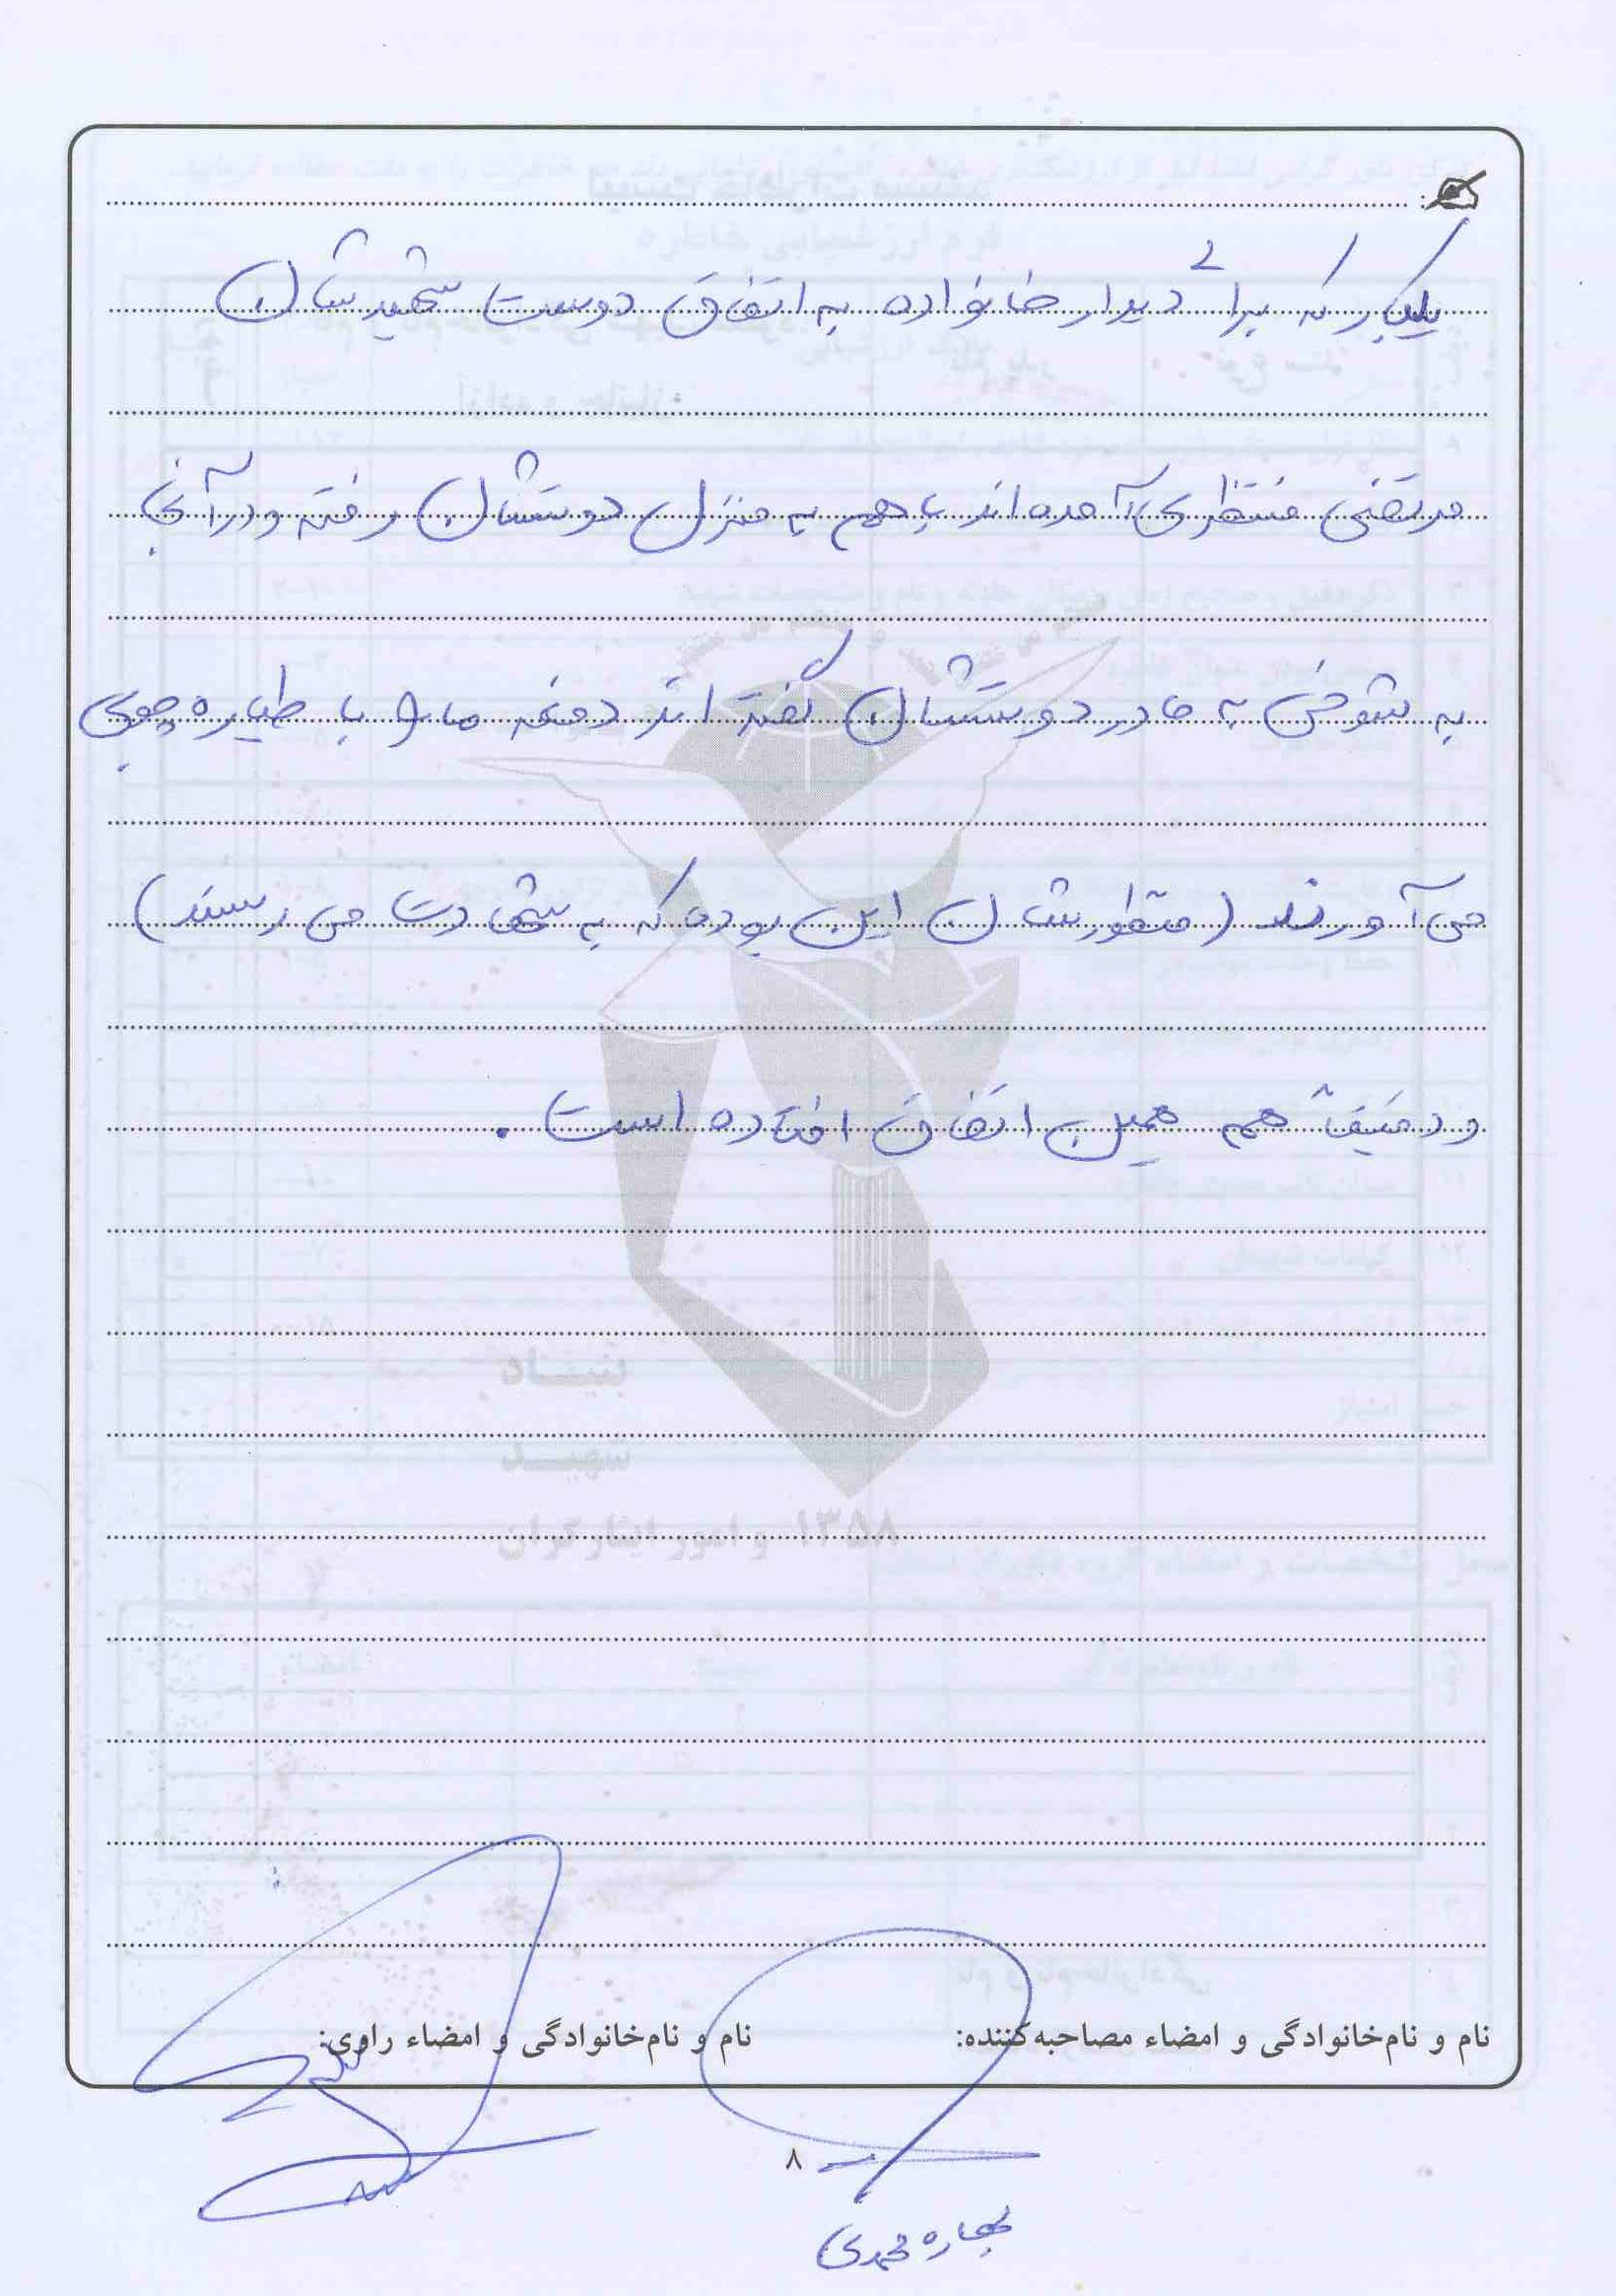 یکبار که برای دیدار خانواده به اتفاق دوست شهیدشان
مرتضی منتظری آمده اند با هم به منزل دوستشان رفته و در آنجا
به شوخی به مادر دوستشان گفته اند دفعه ما را با طیاره چوبی
می آورند (منظورشان این بوده که به شهادت می رسند)
و دقیقاً هم همین اتفاق افتاده است.
بنیاد
شهید
۱۳۵۸ و امور ایثارگران
نام و نام‌خانوادگی و امضاء مصاحبه‌کننده: نام و نام‌خانوادگی و امضاء راوی:
۸
بهاره محمدی